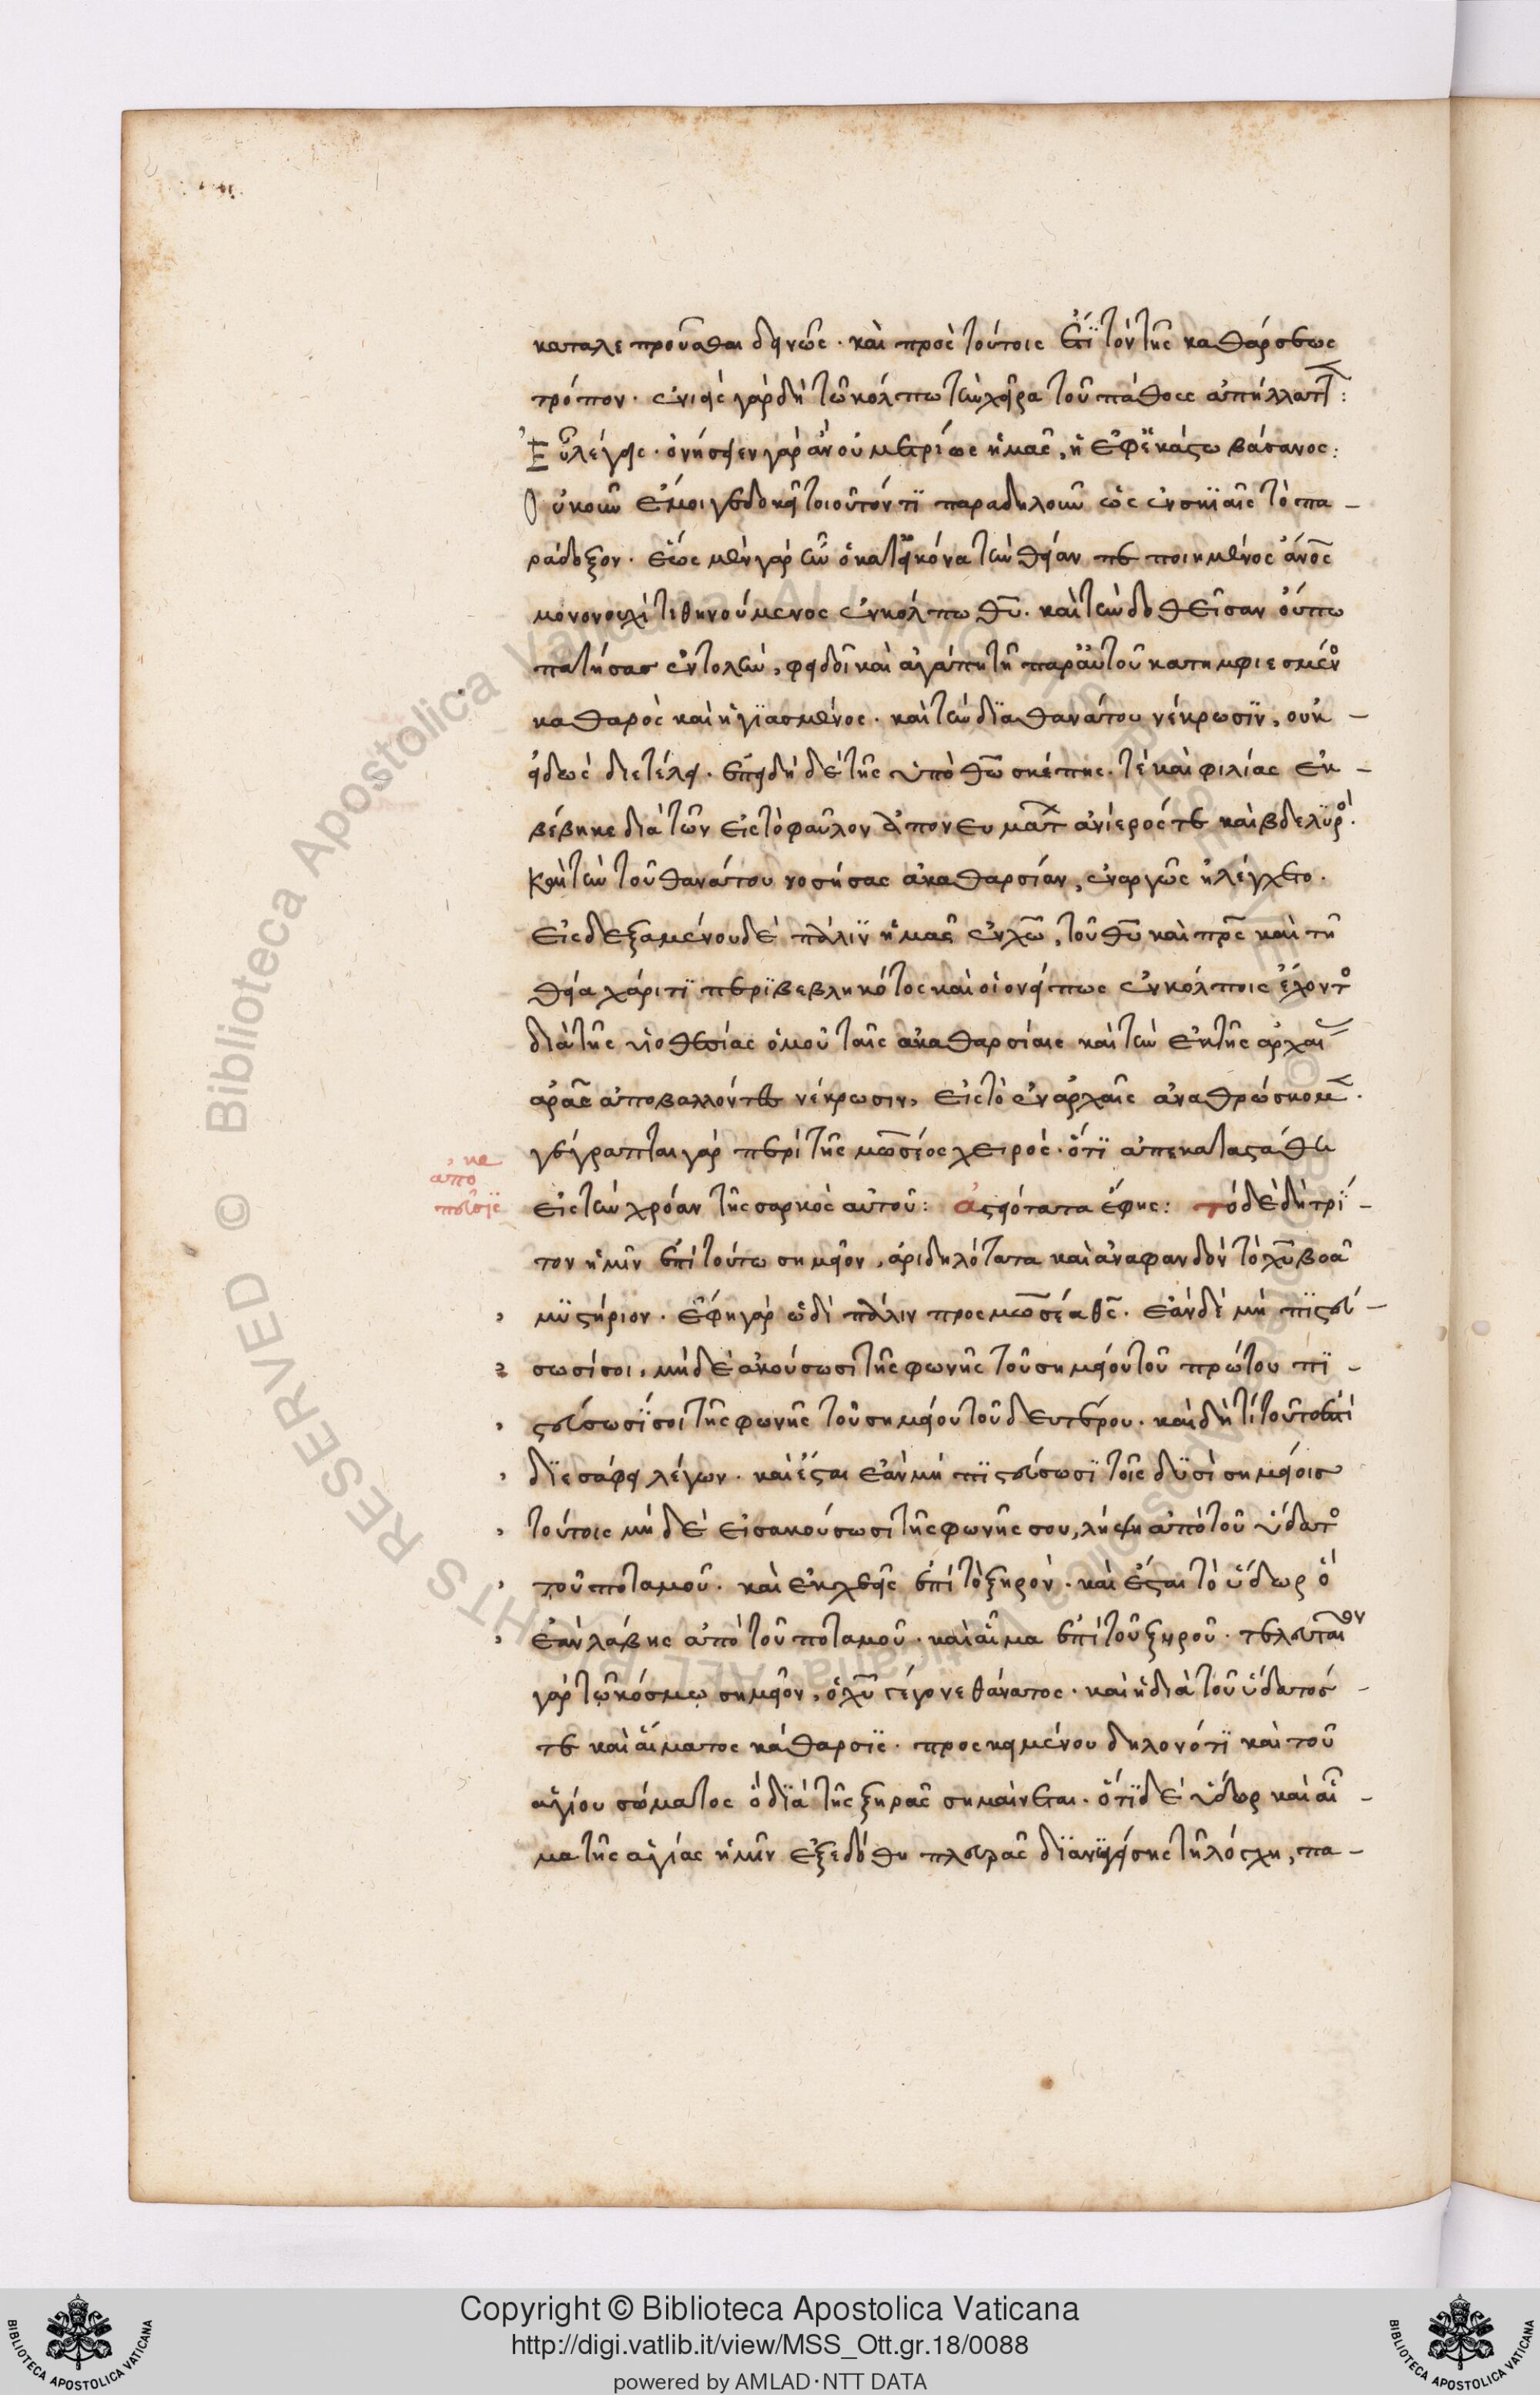 καταλεπροῦσθαι δεινῶς. καὶ πρὸς τούτοις ἔτι τὸν τῆς καθάρσεως
τρόπον. ἐνιεὶς γὰρ δὴ τῷ κόλπω τὴν χεῖρα τοῦ πάθους ἀπήλλαττ:
Εὖ λέγεις. ὀνήσειεν γὰρ ἂν οὐ μετρίως ἡμᾶς, ἡ ἐφ' ἑκάστω βάσανος:
Οὐκοῦν ἔμοιγε δοκεῖ τοιοῦτόν τι παραδηλοῦν ὡς ἐν σκιαῖς τὸ πα-
ράδοξον. ἕως μὲν γὰρ ἦν ὁ κατ' εἰκόνα τὴν θείαν πεποιημένος ἄνος
μονονουχὶ τιθηνούμενος ἐν κόλπω θυ. καὶ τὴν δοθεῖσαν οὔπω
πατήσας ἐντολὴν, φειδοῖ καὶ ἀγάπη τῆ παρ' αὐτοῦ κατημφιεσμένο
καθαρὸς καὶ ἡγιασμένος. καὶ τὴν διὰ θανάτου νέκρωσιν, οὐκ-
εἰδὼς διετέλει. ἐπειδὴ δὲ τῆς ὑπὸ θῶ σκέπης. τὲ καὶ φιλίας ἐκ-
βέβηκε διὰ τῶν εἰς τὸ φαῦλον ἀπονευμάτ ἀνίερός τε καὶ βδελυρὸ.
καὶ τὴν τοῦ θανάτου νοσήσας ἀκαθαρσίαν, ἐναργῶς ἠλέγχετο.
εἰσδεξαμένου δὲ πάλιν ἡμᾶς ἐν χω, τοῦ θυ καὶ πρς καὶ τῆ
θεία χάριτι περιβεβληκότος καὶ οἱονείπως ἐν κόλποις ἔχοντο
διὰ τῆς υἱοθεσίας ὁμοῦ ταῖς ἀκαθαρσίαις καὶ τὴν ἐκ τῆς ἀρχαι
ἀρᾶς ἀποβαλλόντες νέκρωσιν, εἰς τὸ ἐν ἀρχαῖς ἀναθρώσκομ.
γέγραπται γὰρ περὶ τῆς μωσέος χειρὸς. ὅτι ἀπεκατεστάθη
εἰς τὴν χρόαν τῆς σαρκὸς αὐτοῦ: ἀστειότατα ἔφης: τὸ δὲ δὴ τρί-
τον ἡμῖν ἐπὶ τούτω σημεῖον, ἀριδηλότατα καὶ ἀναφανδὸν τὸ χυ βοᾶ
μυστήριον. ἔφη γὰρ ὡδὶ πάλιν προς μωσέα θς. ἐὰν δὲ μὴ πιστεύ-
σωσί σοι, μὴ δὲ ἀκούσωσι τῆς φωνῆς τοῦ σημείου τοῦ πρώτου πι-
στεύσωσί σοι τῆς φωνῆς τοῦ σημείου τοῦ δευτέρου. καὶ δὴ τί τοῦτο ἐπὶ
διεσάφει λέγων. καὶ ἔσται ἐὰν μὴ πιστεύσωσι τοῖς δυσὶ σημείοις
τούτοις μὴ δὲ εἰσακούσωσι τῆς φωνῆς σου, λήψη ἀπὸ τοῦ ὕδατο
τοῦ ποταμοῦ. καὶ ἐκχεεῖς ἐπὶ τὸ ξηρὸν. καὶ ἔσται τὸ ὕδωρ ὃ
ἐὰν λάβης ἀπὸ τοῦ ποταμοῦ. καὶ αἷμα ἐπὶ τοῦ ξηροῦ. τελευταῖον
γὰρ τῷ κόσμῳ σημεῖον, ὁ χυ γέγονε θάνατος. καὶ ἡ διὰ τοῦ ὕδατός-
τε καὶ αἵματος κάθαρσις. προσκειμένου δηλονότι καὶ τοῦ
ἁγίου σώματος ὃ διὰ τῆς ξηρᾶς σημαίνεται. ὅτι δὲ ὕδωρ καὶ αἷ-
μα τῆς ἁγίας ἡμῖν ἐξεδόθη πλευρᾶς διανυγείσης τῆ λόγχη, πα-